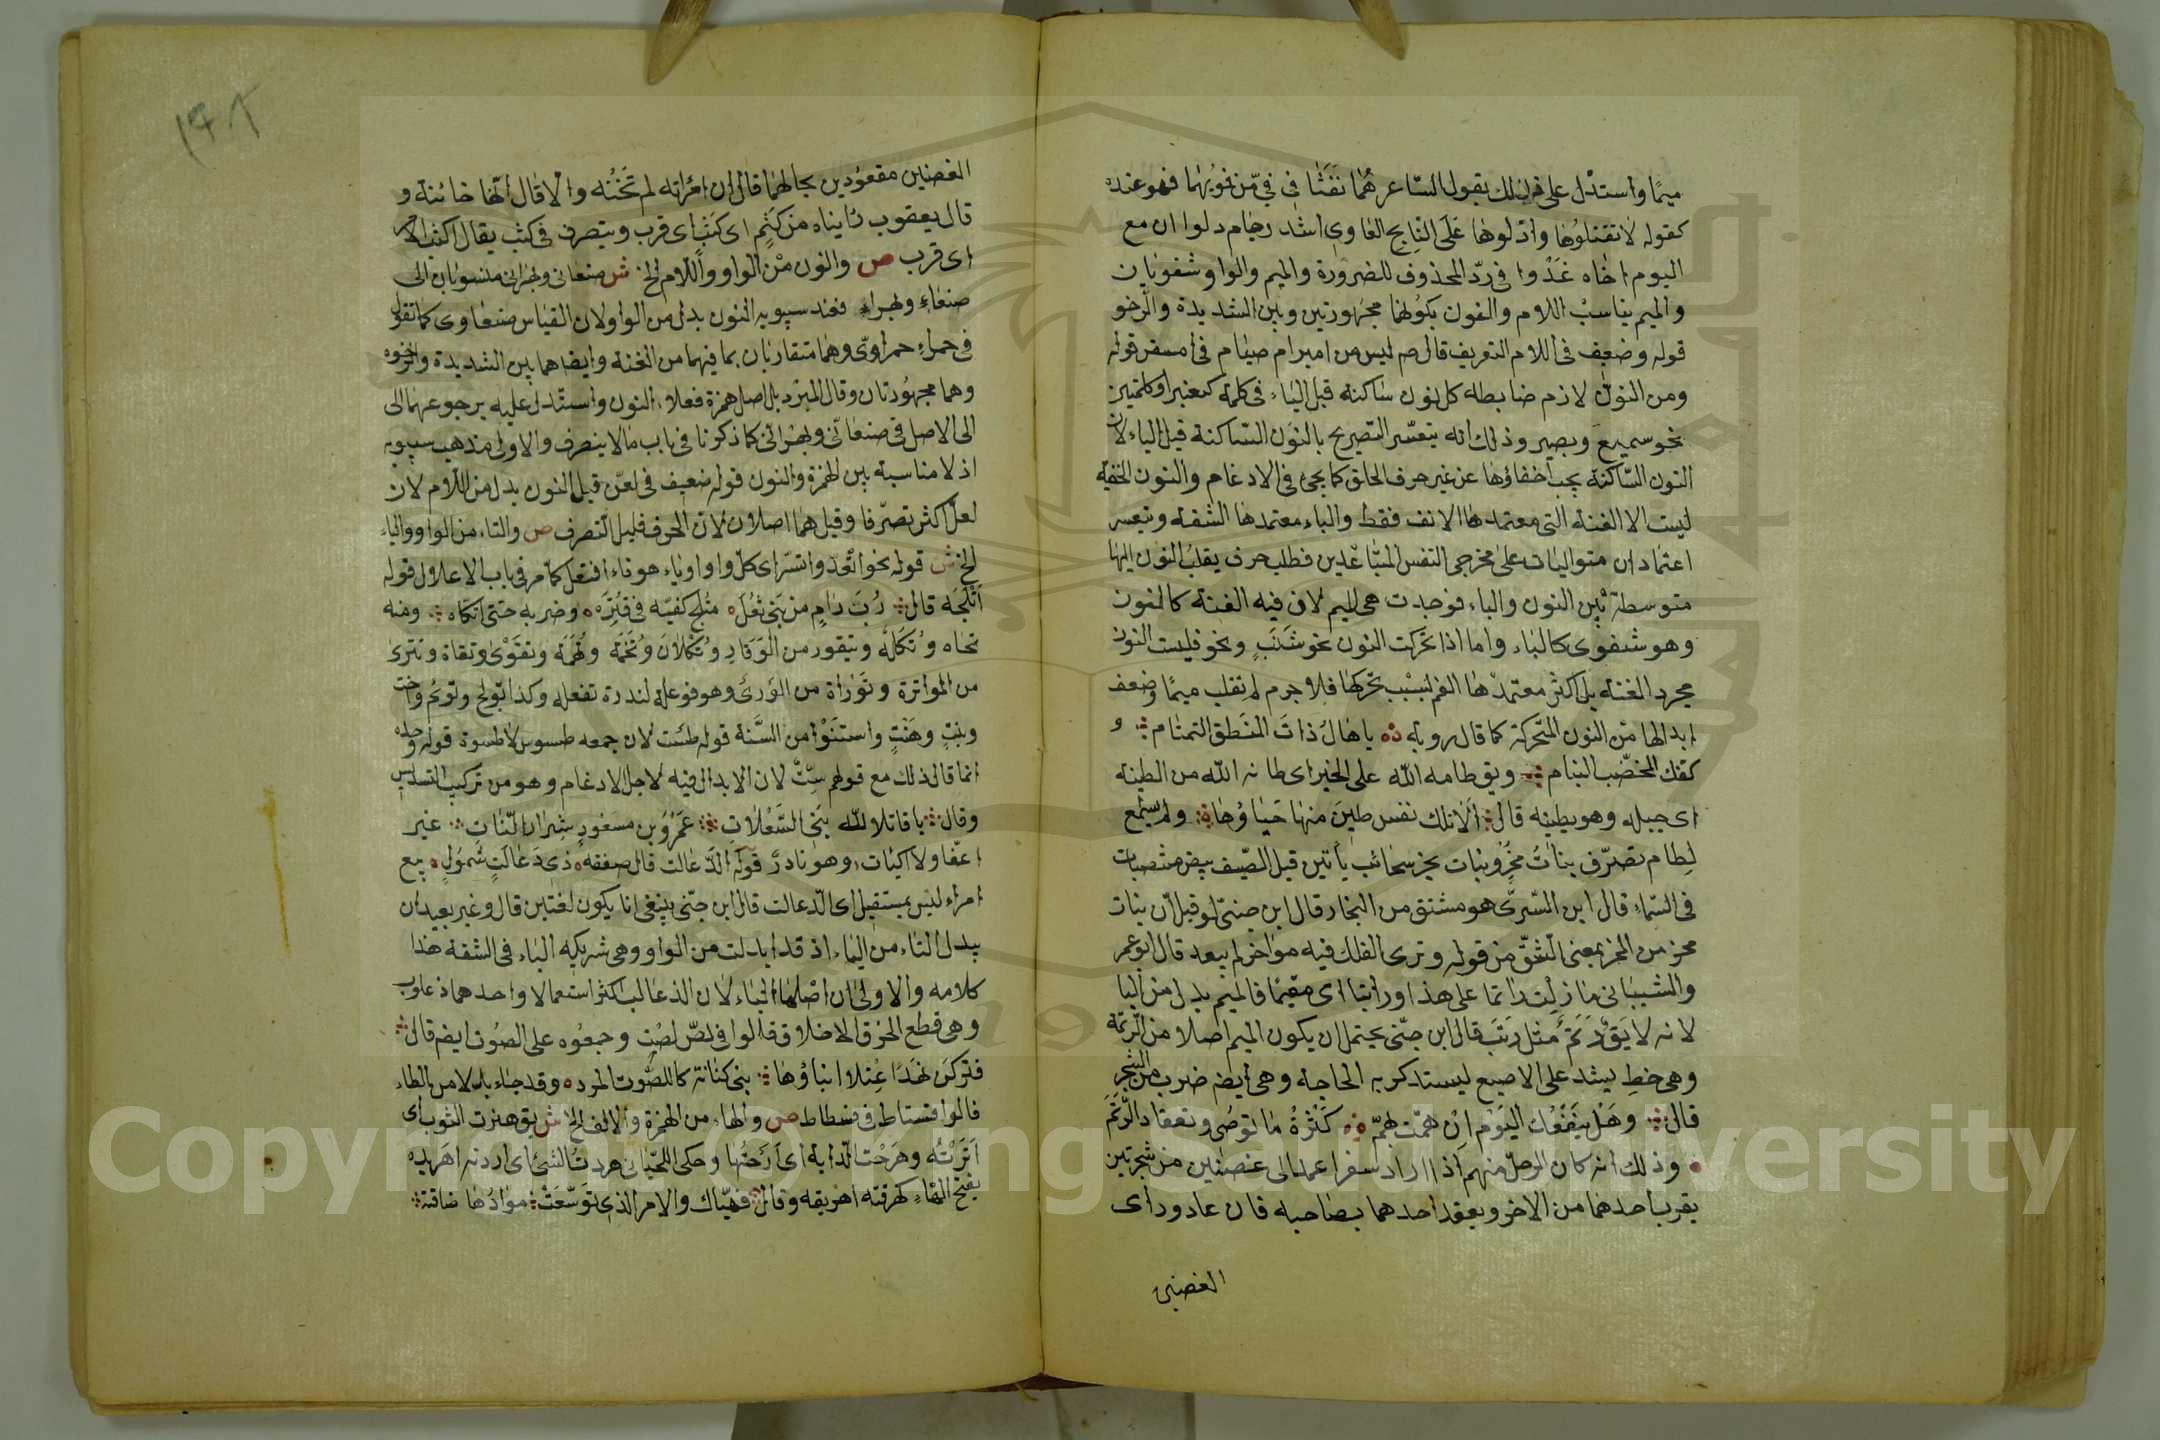 ميمًا واستدل على ذلك بقول الشاعر هُمَا نَفَثَا في فيّ من فمويهما فهو عنده
كقوله لا تقتلوها وادلوها على النابح العاوى اشد رجام دلوا ان مع
اليوم اخاه غَدْوا في ردّ المحذوف للضرورة والميم والواو شفويان
والميم يناسب اللام والنون بكونهما مجهورتين وبين الشديدة والرخو
قوله وضعف في اللام التعريف قال صم ليس من امبرام صيام في امسفر قوله
ومن النون لازم ضابطه كل نون ساكنة قبل الباء في كلمة كعنبر او كلمتين
نحو سميع وبصير وذلك انه يتعسّر التصريح بالنون الساكنة قبل الباء لان
النون السّاكنة يجب اخفاؤها عن غير حرف الحلق كما يجئ في الادغام والنون الخفية
ليست الا الغنة التي معتمدها الانف فقط والباء معتمدها الشفة ويتعسر
اعتمادان متواليات على مخرجي النفس المتباعدين فطلب حرف يقلب النون اليها
متوسطة بين النون والباء فوجدت هي الميم لان فيه الغنة كالنون
وهو شفوى كالباء واما اذا تحركت النون نحو شَنَبٍ ونحو فليست النون
مجرد الغنة بل اكثر معتمدها الفم بسبب تحركها فلا جرم لم تقلب ميمًا وضعف
ابدالها من النون المتحركة كما قال روبة يا هال ذات المنطق التمتام و
كفك المخضب البنام ويق طامه الله على الخير اى طانه الله من الطينة
اى جبله وهو يطينه قال الا تلك نفس طين منها حياؤها ولم يسمع
لطام تصرّف بنات مخرو بنات بخر سحائب يأتين قبل الصيف بيض منتصبات
في السماء قال ابن السّرى هو مشتق من البخار قال ابن جنى لو قيل ان بنات
مخر من المخر بمعنى الشق من قوله وترى الفلك فيه مواخر لم يبعد قال ابو عمر
والشيبانى ما زلت راتما على هذا وراتبا اى مقيمًا فالميم بدل من البا
لانه لا يَق رَتَمَ مثل رَتَبَ قال ابن جنّى يحتمل ان يكون الميم اصلا من الرتمة
وهى خيط يشد على الاصبع ليستذكر به الحاجة وهى ايضم ضرب من الشجر
قال وهل ينفعك اليوم ان همّت بهمّ كثرةُ ما توصى وتعقاد الرتَم
وذلك انه كان الرجل منهم اذا اراد سفرا عمد الى غصنين من شجرتين
يقرب احدهما من الاخر ويعقد احدهما بصاحبه فان عاد وراى
الغصنين
١٦٨
الغصنين مقعودين بحالهما قال ان امراته لم تخنه والا قال انّها خائنة و
قال يعقوب راىناه من كَثَمٍ اى كَثب اى قرب ويتصرف في كثب يقال اكثب الامر
اى قرب ص والنون من الواو واللام الخ ش صنعانى وبهرانى منسوبان الى
صنعاء وبهراء فعند سيبويه النون بدل من الواو لان القياس صنعاوى كما تقول
في حمراء حمراوىّ وهما متقاربان بما فيهما من الغنة وايضا هما بين الشديدة والرخوة
وهما مجهورتان وقال المبرد بل اصل همزة فعلاء النون واستدل عليه برجوعهما الى
الى الاصل في صنعانى وبهرانى كما ذكرنا في باب ما لا ينصرف والاولى مذهب سيبويه
اذ لا مناسبة بين الهمزة والنون قوله ضعيف في لعنّ قيل النون بدل من اللام لان
لعل اكثر تصرّفا وقيل هما اصلان لان الحرف قليل التصرف ص والتاء من الواو والياء
الخ ش قوله نحو اتّعد واتّسر اى كل واو او ياء هو فاء افتعل كما مر في باب الاعلال قوله
اتلجه قال رُبَّ رامٍ من بنى ثعل متلج كفيّه في قتره وضربه حتى اتكاه ومنه
تجاه وتكلة وتيقور من الوقار وتكلان وتخمة وتهمة وتقوى وتقاة وتترى
من المواترة وتوراة من الورى وهو فوعلة لندرة تفعلة وكذا تولج وتوءم واخت
وبنت وهنت واستنتوا من السَّنة قوله طست لان جمعه طسوس لا طسوة قوله وحده
انما قال ذلك مع قولهم ستّ لان الابدال فيه لاجل الادغام وهو من تركيب التسديس
وقال يا قاتل الله بنى السّعلات عمرو بن مسعود شرار النّات غير
اعفاء ولا اكيات وهو نادر قوله الذعالت قال صفقة ذى ذعالت شمول بيع
امرء ليس بمستقيل اى الذعالب قال ابن جنى ينبغى ان يكون لغتين قال وغير بعيد ان
يبدل التاء من الباء اذ قد ابدلت من الواو وهى شريكة الباء في الشفة هذا
كلامه والاولى ان اصلها الباء لان الذعالب اكثر استعمالا واحدهما ذعلوب
وهى قطع الخرق الاخلاق وقالوا في لصّ لصت وجمعوه على الصُوت ايضم قال
فتركن نهدًا عُيّلا ابناؤها بنى كنانة كاللصوت المرد وقد جاء بدلا من الطاء
قالوا فستاط في فسطاط ص والهاء من الهمزة والالف الخ ش يق هنرت الثوب اى
انرته وهرحت الدابة اى ارحتها وحكى اللحيانى هردت الشئ اى اردته اهريده
بفتح الهاء كهرقته اهريقه وقال فهيّاك والامر الذى توسّعت مواردها ضاقت
Copyright © King Saud University
جامعة الملك سعود